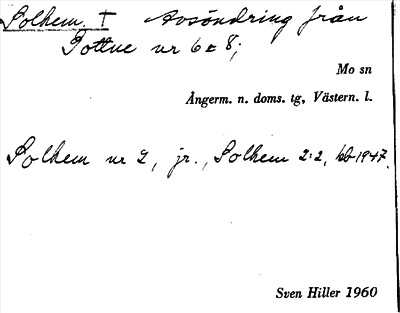 Solhem. † Avsöndring från
Gottne nr 6 = 8;
Mo sn
Ångerm. n. doms. tg, Västern. l.
Solhem nr 2, jr., Solhem 2:2, kb 1947.
Sven Hiller 1960